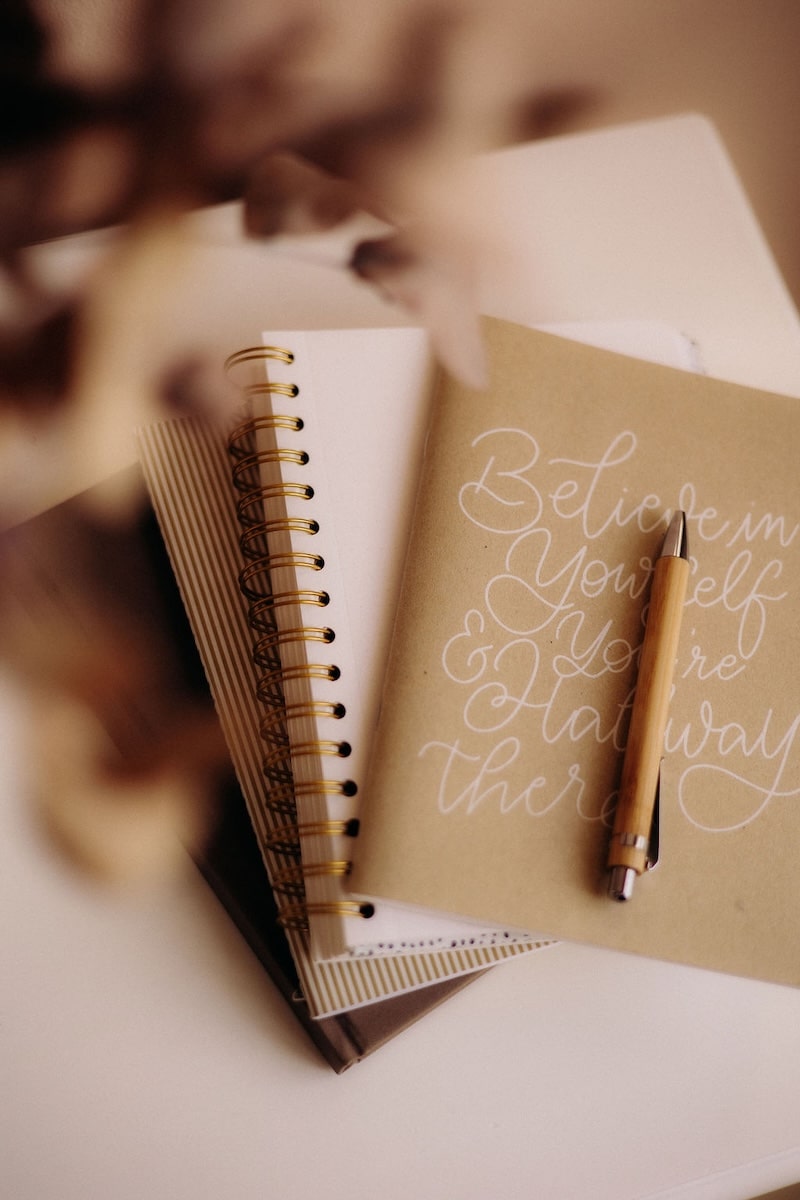 Believe in
Yourself
& You're
Halfway
there